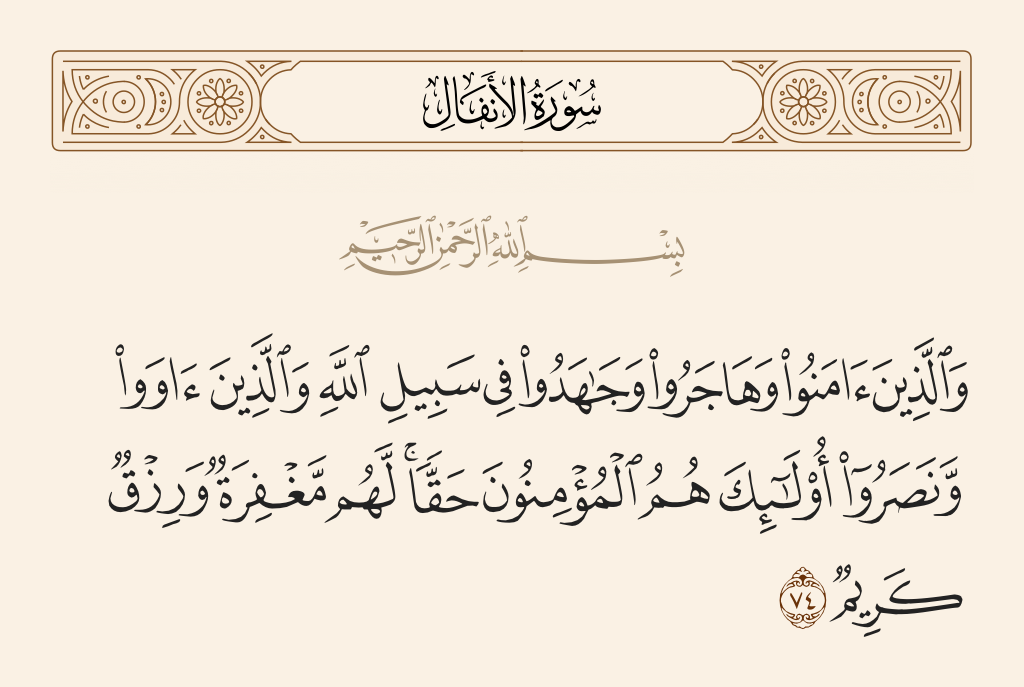 سُورَةُ الأَنفَالِ
بِسْمِ ٱللَّهِ ٱلرَّحْمَٰنِ ٱلرَّحِيمِ
وَٱلَّذِينَ ءَامَنُوا۟ وَهَاجَرُوا۟ وَجَٰهَدُوا۟ فِى سَبِيلِ ٱللَّهِ وَٱلَّذِينَ ءَاوَوا۟
وَّنَصَرُوٓا۟ أُو۟لَٰٓئِكَ هُمُ ٱلْمُؤْمِنُونَ حَقًّا ۚ لَّهُم مَّغْفِرَةٌ وَرِزْقٌ
كَرِيمٌ ٧٤